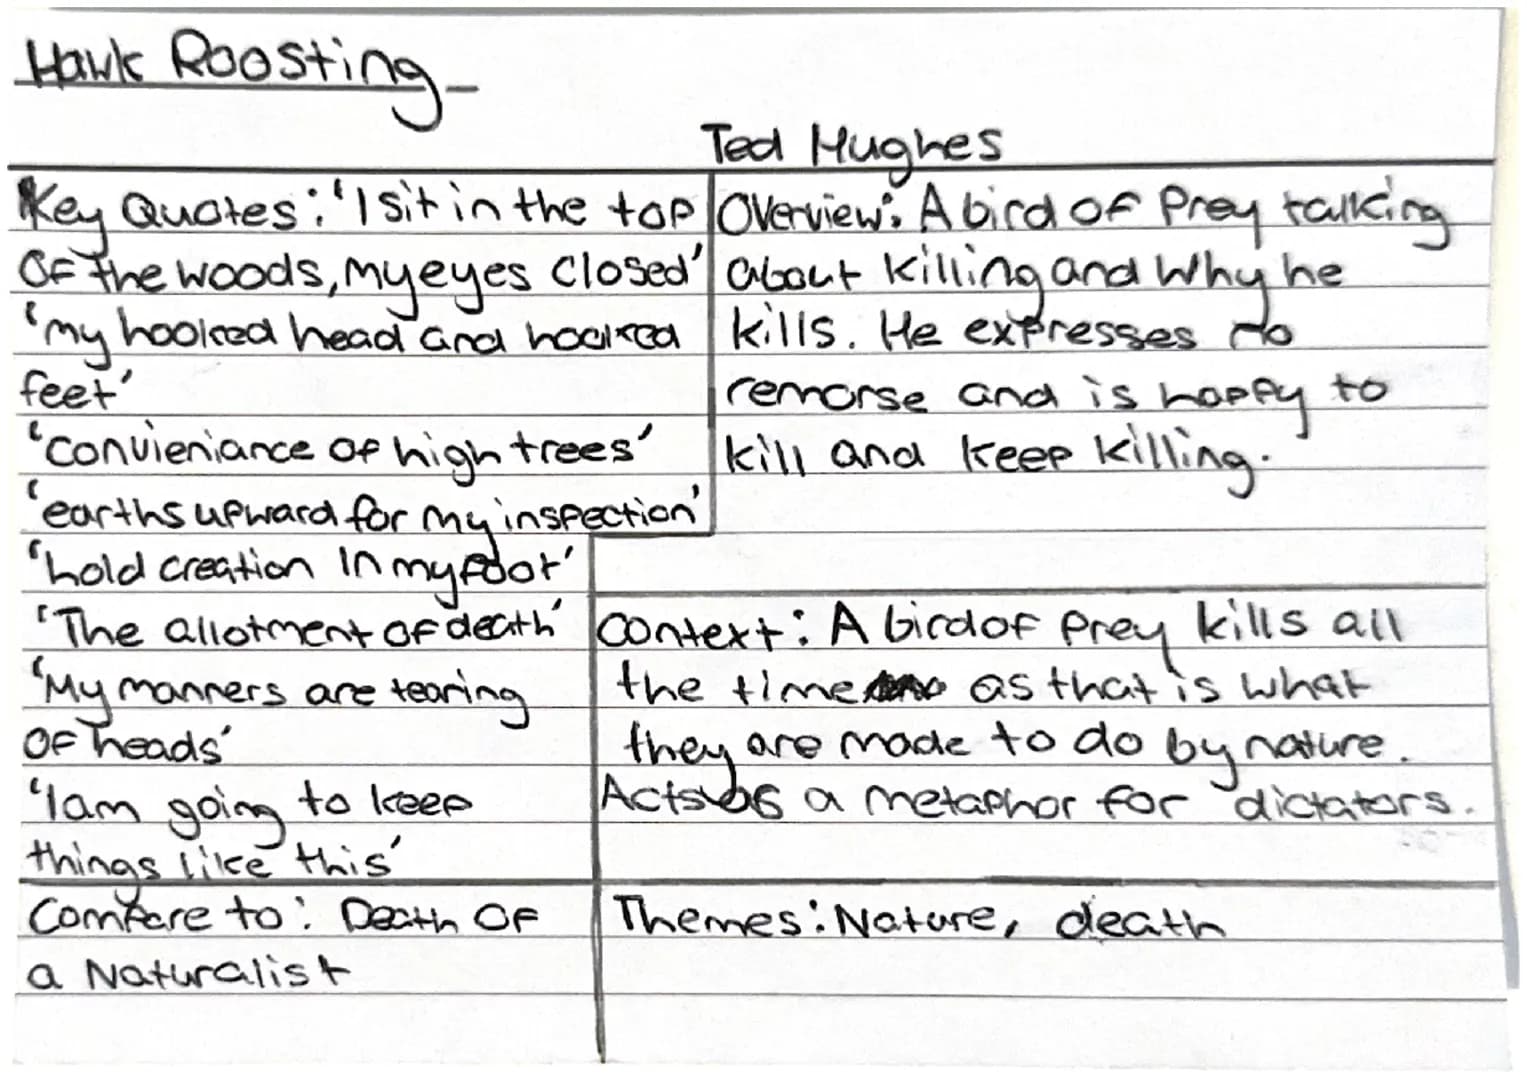 Hawk Roosting-
Ted Hughes
Key Quotes: 'I sit in the top
of the woods, my eyes closed'
'my hooked head and hooked
feet'
'convieniance of high trees'
'earths upward for my inspection'
'hold creation in my foot'
'The allotment of death'
'My manners are tearing
of heads'
'I am going to keep
things like this'
Overview: A bird of Prey talking
about killing and why he
kills. He expresses no
remorse and is happy to
kill and keep killing.
Context: A bird of prey kills all
the time as that is what
they are made to do by nature.
Acts as a metaphor for dictators.
Compare to: Death of
a Naturalist
Themes: Nature, death